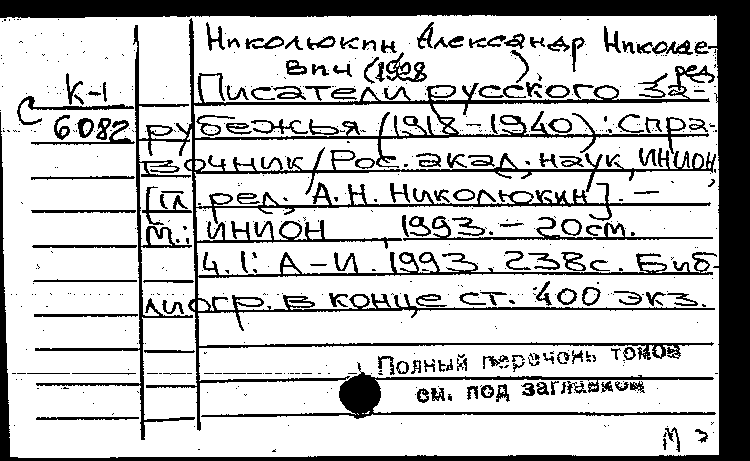 Николюкин, Александр Николае-
вич (1928 ). ред
К-1 Писатели русского За-
С 6082 рубежья (1918-1940) : Спра-
вочник / Рос. акад. наук, ИНИОН;
[гл. ред. А.Н. Николюкин]. —
М.: ИНИОН, 1993. - 20см.
Ч.1: А-И. 1993. 238с. Биб-
лиогр. в конце ст. 400 экз.
Полный перечень томов
см. под заглавием
М